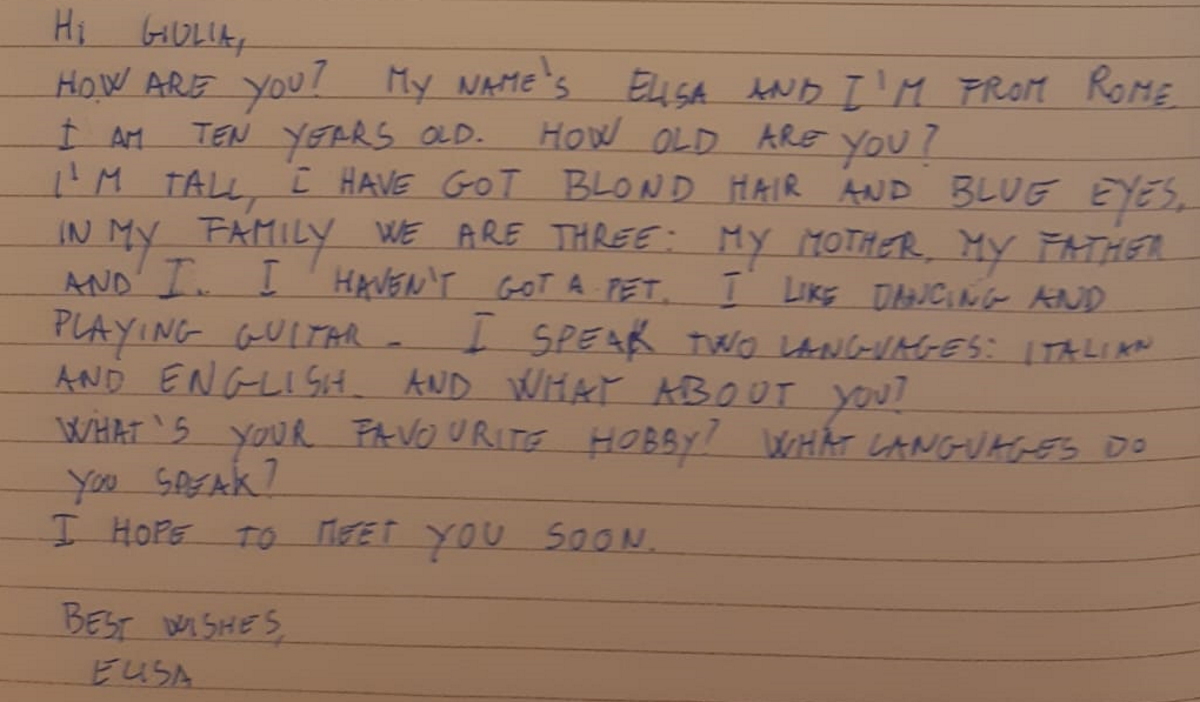 Hi GIULIA,
HOW ARE YOU? MY NAME'S ELISA AND I'M FROM ROME.
I AM TEN YEARS OLD. HOW OLD ARE YOU?
I'M TALL, I HAVE GOT BLOND HAIR AND BLUE EYES,
IN MY FAMILY WE ARE THREE: MY MOTHER, MY FATHER
AND I. I HAVEN'T GOT A PET. I LIKE DANCING AND
PLAYING GUITAR. I SPEAK TWO LANGUAGES: ITALIAN
AND ENGLISH. AND WHAT ABOUT YOU?
WHAT'S YOUR FAVOURITE HOBBY? WHAT LANGUAGES DO
YOU SPEAK?
I HOPE TO MEET YOU SOON.
BEST WISHES,
ELISA